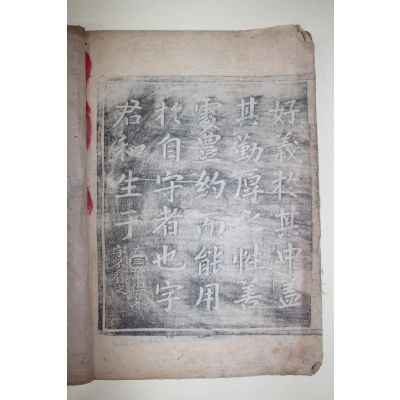 好義於其中盖
其勤厚之性善
嗇豊約而能用
於自守者也字
君和生于